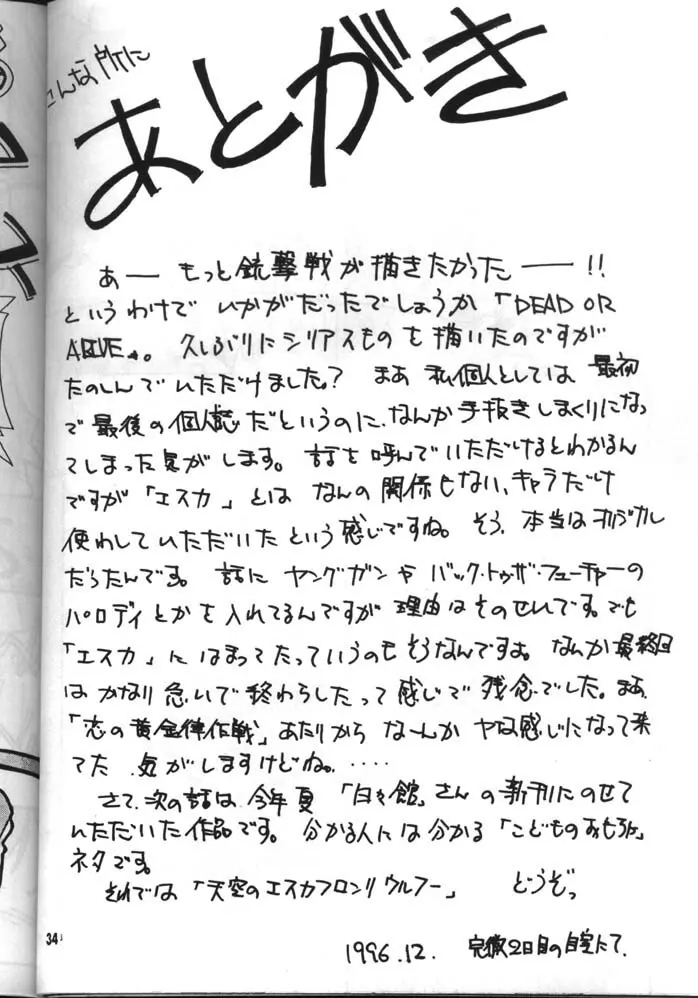 こんな所に
あとがき
あー もっと銃撃戦が描きたかったー!!
というわけで いかがだったでしょうか「DEAD OR
ALIVE」。久しぶりにシリアスものを描いたのですが
たのしんでいただけました? まあ 私個人としては 最初
で最後の個人誌だというのに、なんか手抜きしまくりになっ
てしまった気がします。話を呼んでいただけるとわかるん
ですが「エスカ」とは なんの関係もない、キャラだけ
使わしていただいたという感じですね。そう、本当はオリジナル
だったんです。話に ヤングガンや バック・トゥ・ザ・フューチャーの
パロディとかを入れてるんですが 理由はそのせいです。でも
「エスカ」にはまってたっていうのもそうなんですよ。なんか最終回
はかなり急いで終わらしたって感じで残念でした。まあ、
「恋の黄金律作戦」あたりから なーんか ヤな感じになって来
てた 気がしますけどね。・・・・
さて、次の話は、今年夏「日々館」さんの新刊にのせて
いただいた作品です。分かる人には分かる「こどものおもちゃ」
ネタです。
それでは「天空のエスカフロンリウルフー」 どうぞっ
34
1996.12. 完徹2日目の自室にて.